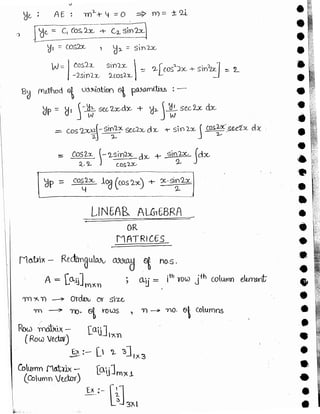 yc : AE : m²+4=0 ⇒ m = ±2i
yc = C₁ cos2x + C₂ sin2x
y₁ = cos2x , y₂ = sin2x
W = | cos2x sin2x | = 2[cos²2x + sin²2x] = 2
| -2sin2x 2cos2x |
By method of variation of parameters :-
yp = y₁ ∫ -y₂/W sec2x dx + y₂ ∫ y₁/W sec2x dx
= cos2x ∫ -sin2x/2 sec2x dx + sin2x ∫ cos2x/2 sec2x dx
= cos2x/2.2 ∫ -2sin2x/cos2x dx + sin2x/2 ∫ dx
yp = cos2x/4 log(cos2x) + x·sin2x/2
LINEAR ALGEBRA
OR
MATRICES
Matrix - Rectangular array of nos.
A = [aij]m×n ; aij = iᵗʰ row jᵗʰ column element
m×n → Order or size
m → no. of rows , n → no. of columns
Row matrix - [aij]1×n
(Row Vector)
Ex :- [1 2 3]1×3
Column Matrix - [aij]m×1
(Column Vector)
Ex :- [1
2
3]3×1